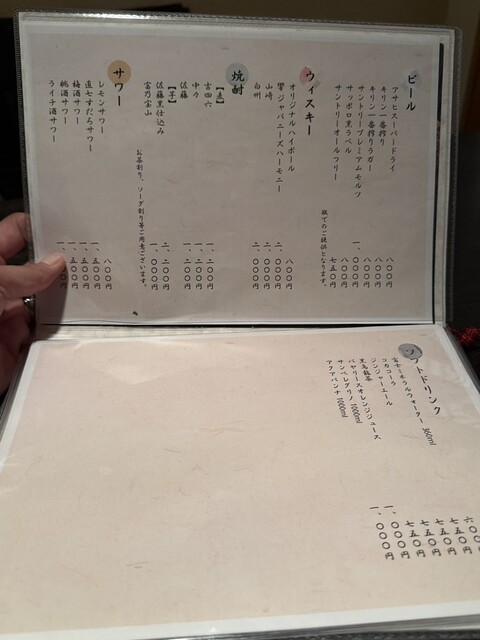 ビール
アサヒスーパードライ 八〇〇円
キリン一番搾り 八〇〇円
キリン一番搾りラガー 八〇〇円
サントリープレミアムモルツ 一、〇〇〇円
サッポロ黒ラベル 八〇〇円
サントリーオールフリー 七五〇円
瓶でのご提供となります。
ウィスキー
オリジナルハイボール 八〇〇円
響ジャパニーズハーモニー 二、〇〇〇円
山崎 二、〇〇〇円
白州 二、〇〇〇円
焼酎
【麦】
吉四六 一、二〇〇円
中々 一、二〇〇円
佐藤 一、二〇〇円
【芋】
佐藤黒仕込み 二、二〇〇円
富乃宝山 一、〇〇〇円
お茶割り、ソーダ割り等ご用意ございます。
サワー
レモンサワー 八〇〇円
直七すだちサワー 一、五〇〇円
梅酒サワー 一、五〇〇円
桃酒サワー 一、五〇〇円
ライチ酒サワー
ソフトドリンク
富士ミネラルウォーター 360ml 六〇〇
コカコーラ 七五〇円
ジンジャーエール 七五〇円
黒烏龍茶 七五〇円
バヤリースオレンジジュース 七五〇円
サンペレグリノ 1000ml 一、〇〇〇円
アクアパンナ 1000ml 一、〇〇〇円